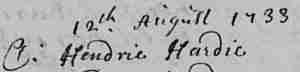 12th. August 1733
Ct: Hendrie Hardie